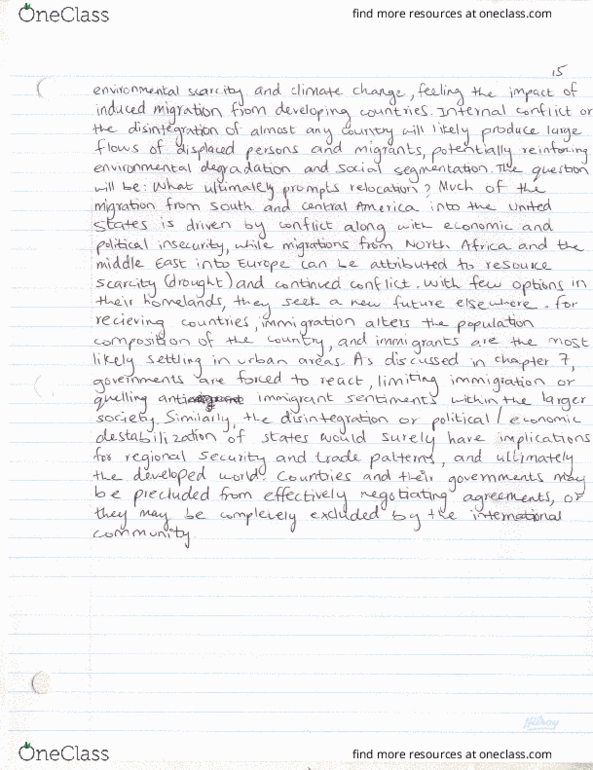 OneClass
find more resources at oneclass.com
15
environmental scarcity and climate change, feeling the impact of
induced migration from developing countries. Internal conflict or
the disintegration of almost any country will likely produce large
flows of displaced persons and migrants, potentially reinforcing
environmental degradation and social segmentation. The question
will be: What ultimately prompts relocation? Much of the
migration from South and central America into the United
States is driven by conflict along with economic and
political insecurity, while migrations from North Africa and the
middle East into Europe can be attributed to resource
scarcity (drought) and continued conflict. With few options in
their homelands, they seek a new future elsewhere. For
recieving countries, immigration alters the population
composition of the country, and immigrants are the most
likely settling in urban areas. As discussed in chapter 7,
governments are forced to react, limiting immigration or
quelling anti immigrant sentiments within the larger
society. Similarly, the disintegration or political / economic
destabilization of states would surely have implications
for regional security and trade patterns, and ultimately
the developed world. Countries and their governments may
be precluded from effectively negotiating agreements, or
they may be completely excluded by the international
community.
Hilroy
OneClass
find more resources at oneclass.com